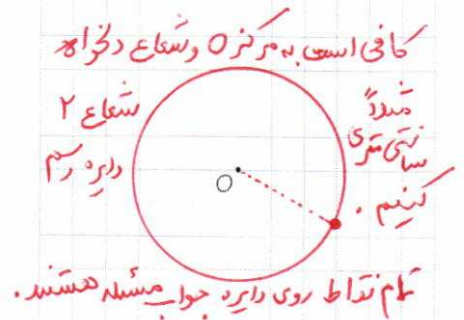 کافی است به مرکز O و شعاع دلخواه
مثلاً
شعاع ۲
سانتی متری
دایره رسم
کنیم .
O
تمام نقاط روی دایره جواب مسئله هستند .